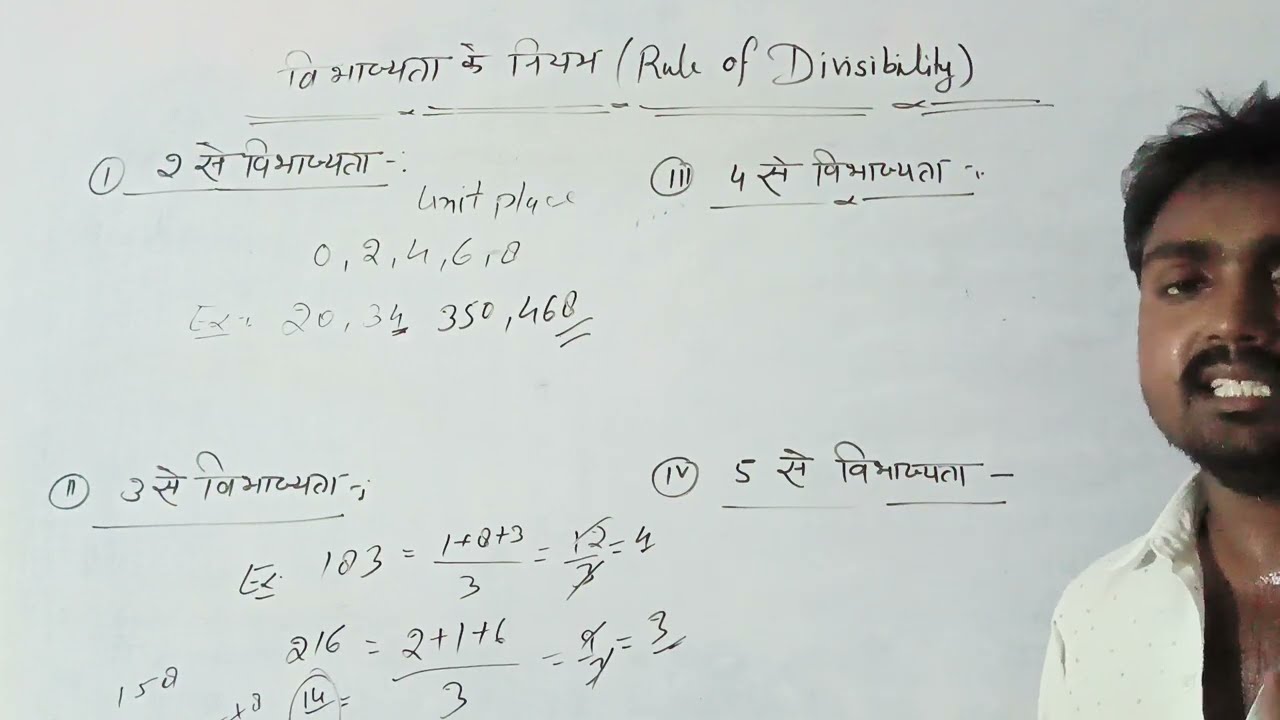 विभाज्यता के नियम (Rule of Divisibility)
I 2 से विभाज्यता -:
Unit place
0, 2, 4, 6, 8
Ex -: 20, 34 350, 468
II 3 से विभाज्यता -;
Ex. 183 = 1+8+3/3 = 12/3 = 4
216 = 2+1+6/3 = 9/3 = 3
158
+8 14 =
III 4 से विभाज्यता -:
IV 5 से विभाज्यता -